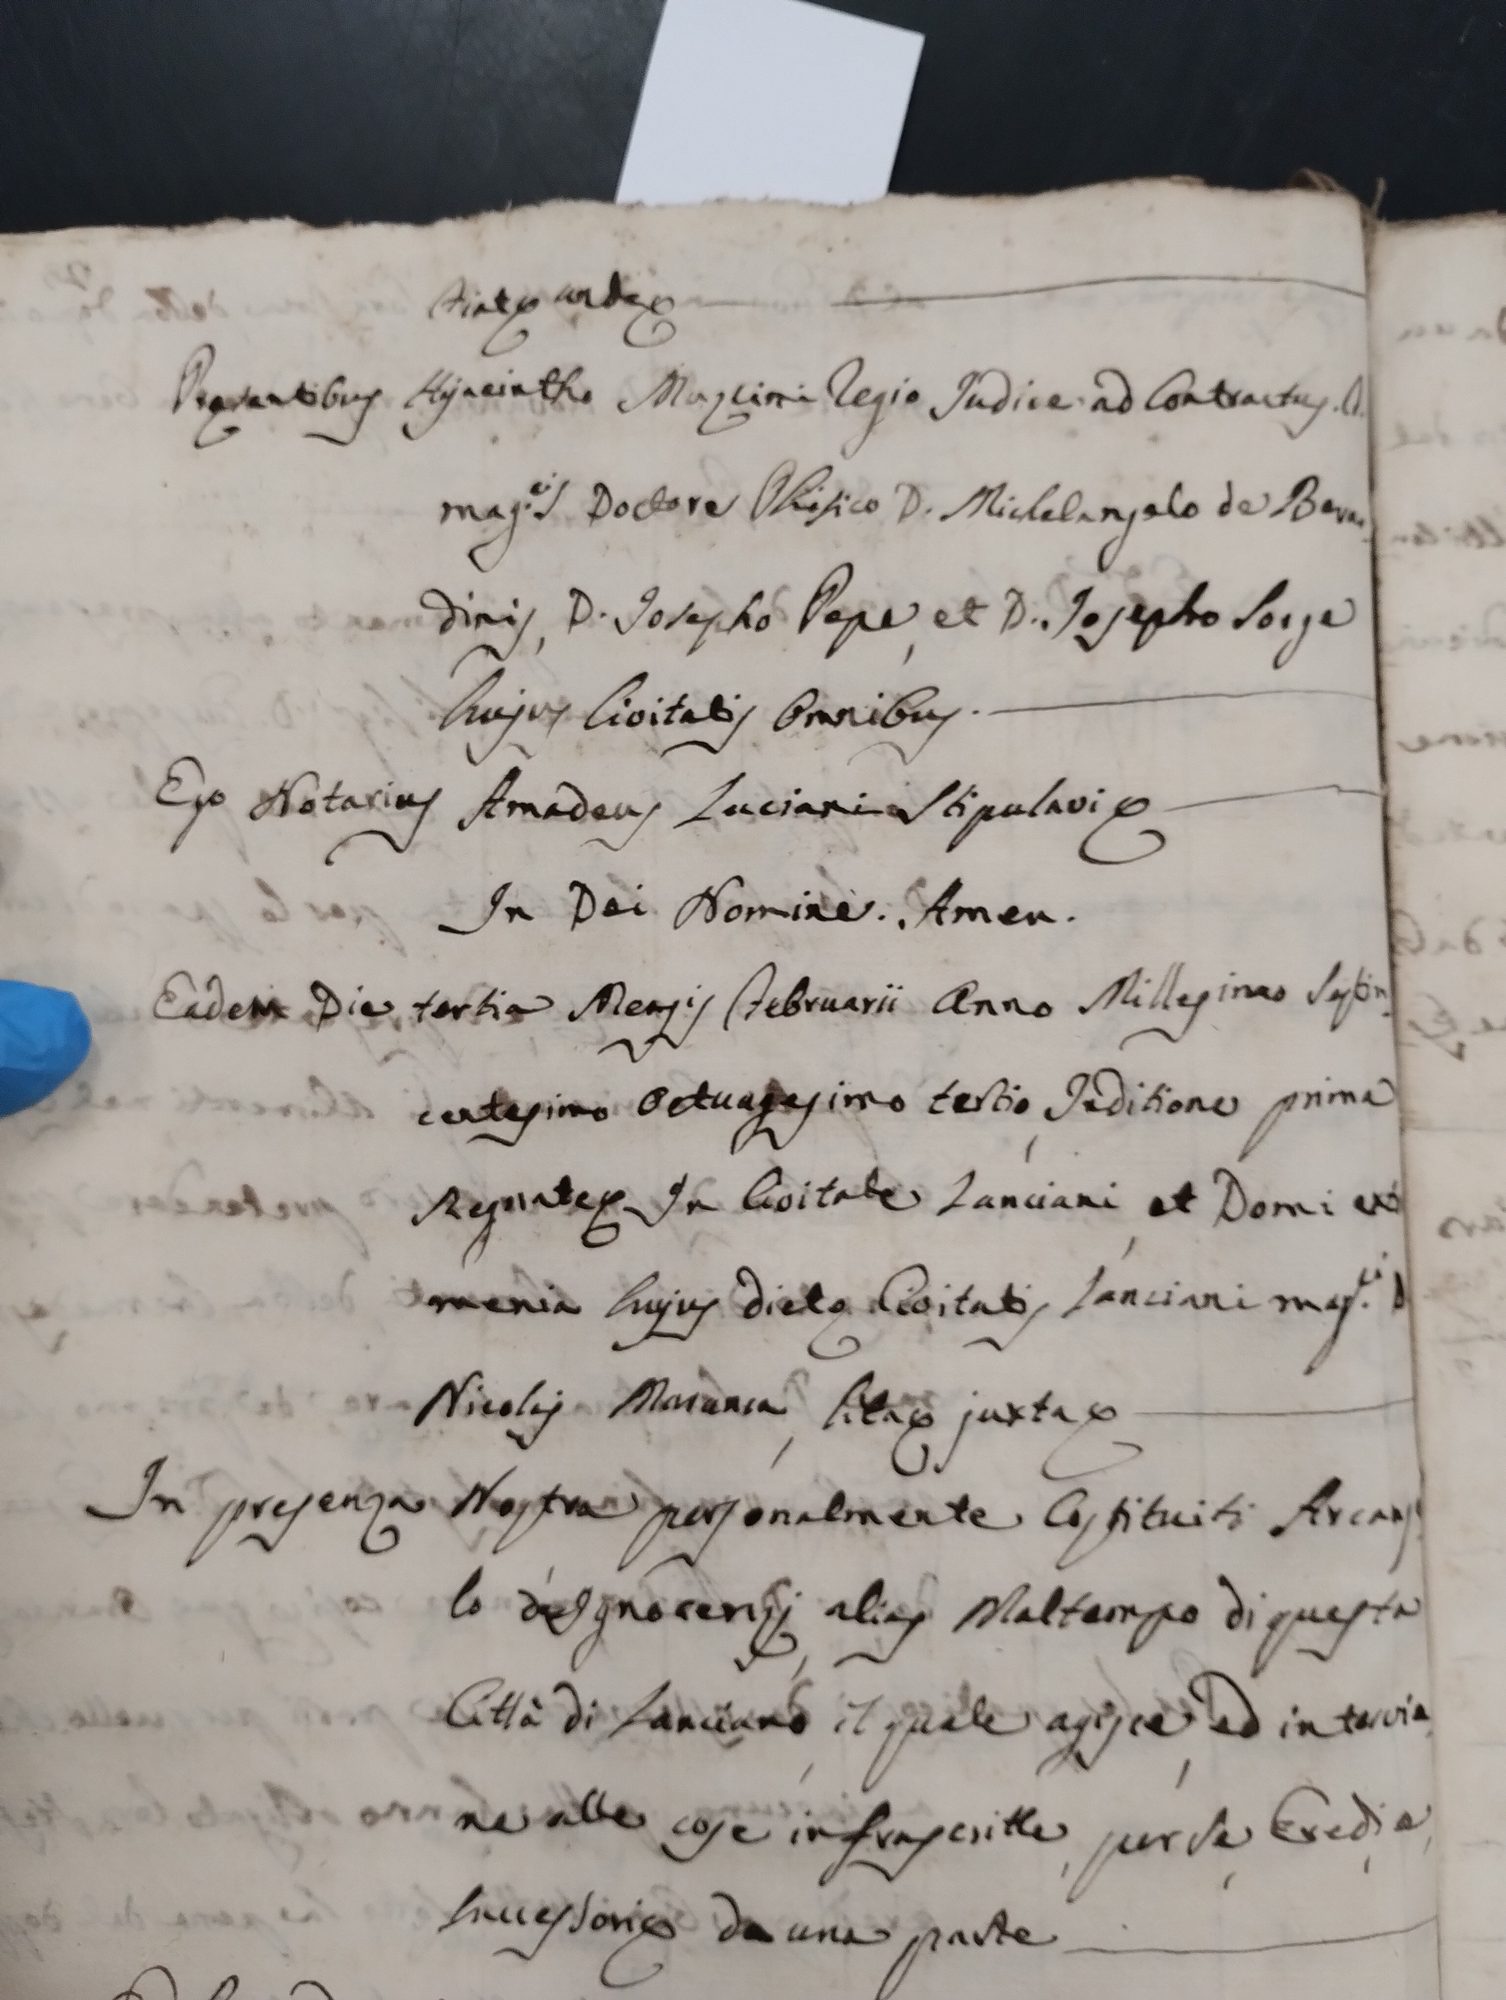 Presentibus Hyacintho Maximi Regio Judice ad Contractus.
mag.cis Doctore Phisico D. Michelangelo de Berar
dinis, D. Josepho Pepe, et D. Josepho Sorge
hujus Civitatis Omnibus.
Ego Notarius Amadeus Luciani Stipulavi
In Dei Nomine. Amen.
Eadem Die tertia Mensis Februarii Anno Millesimo Septin
centesimo Octuagesimo tertio, Inditione prima
Regnate In Civitate Lanciani, et Domi ext
menia hujus dicte Civitatis Lanciani mag.ci D
Nicolis juxta
In presenza Nostra personalmente Costituiti Arcang
lo d'Ignocentij, alias Maltempo di questa
Città di Lanciano, il quale agisce, ed intervie
ne alle cose infrascritte, per se, Eredi, e
Successori da una parte